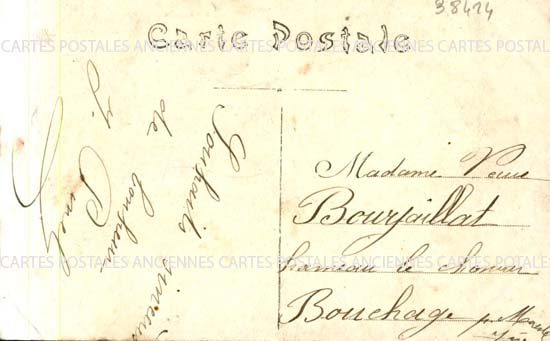 38424
Carte Postale
CARTES POSTALES ANCIENNES CARTES POSTALES ANCIENNES CARTES POSTALES
Souhaits sincères
de bonheur
J.
Madame Veuve
Bourjaillat
hameau le
Bouchage
CARTES POSTALES ANCIENNES CARTES POSTALES ANCIENNES CARTES POSTALES